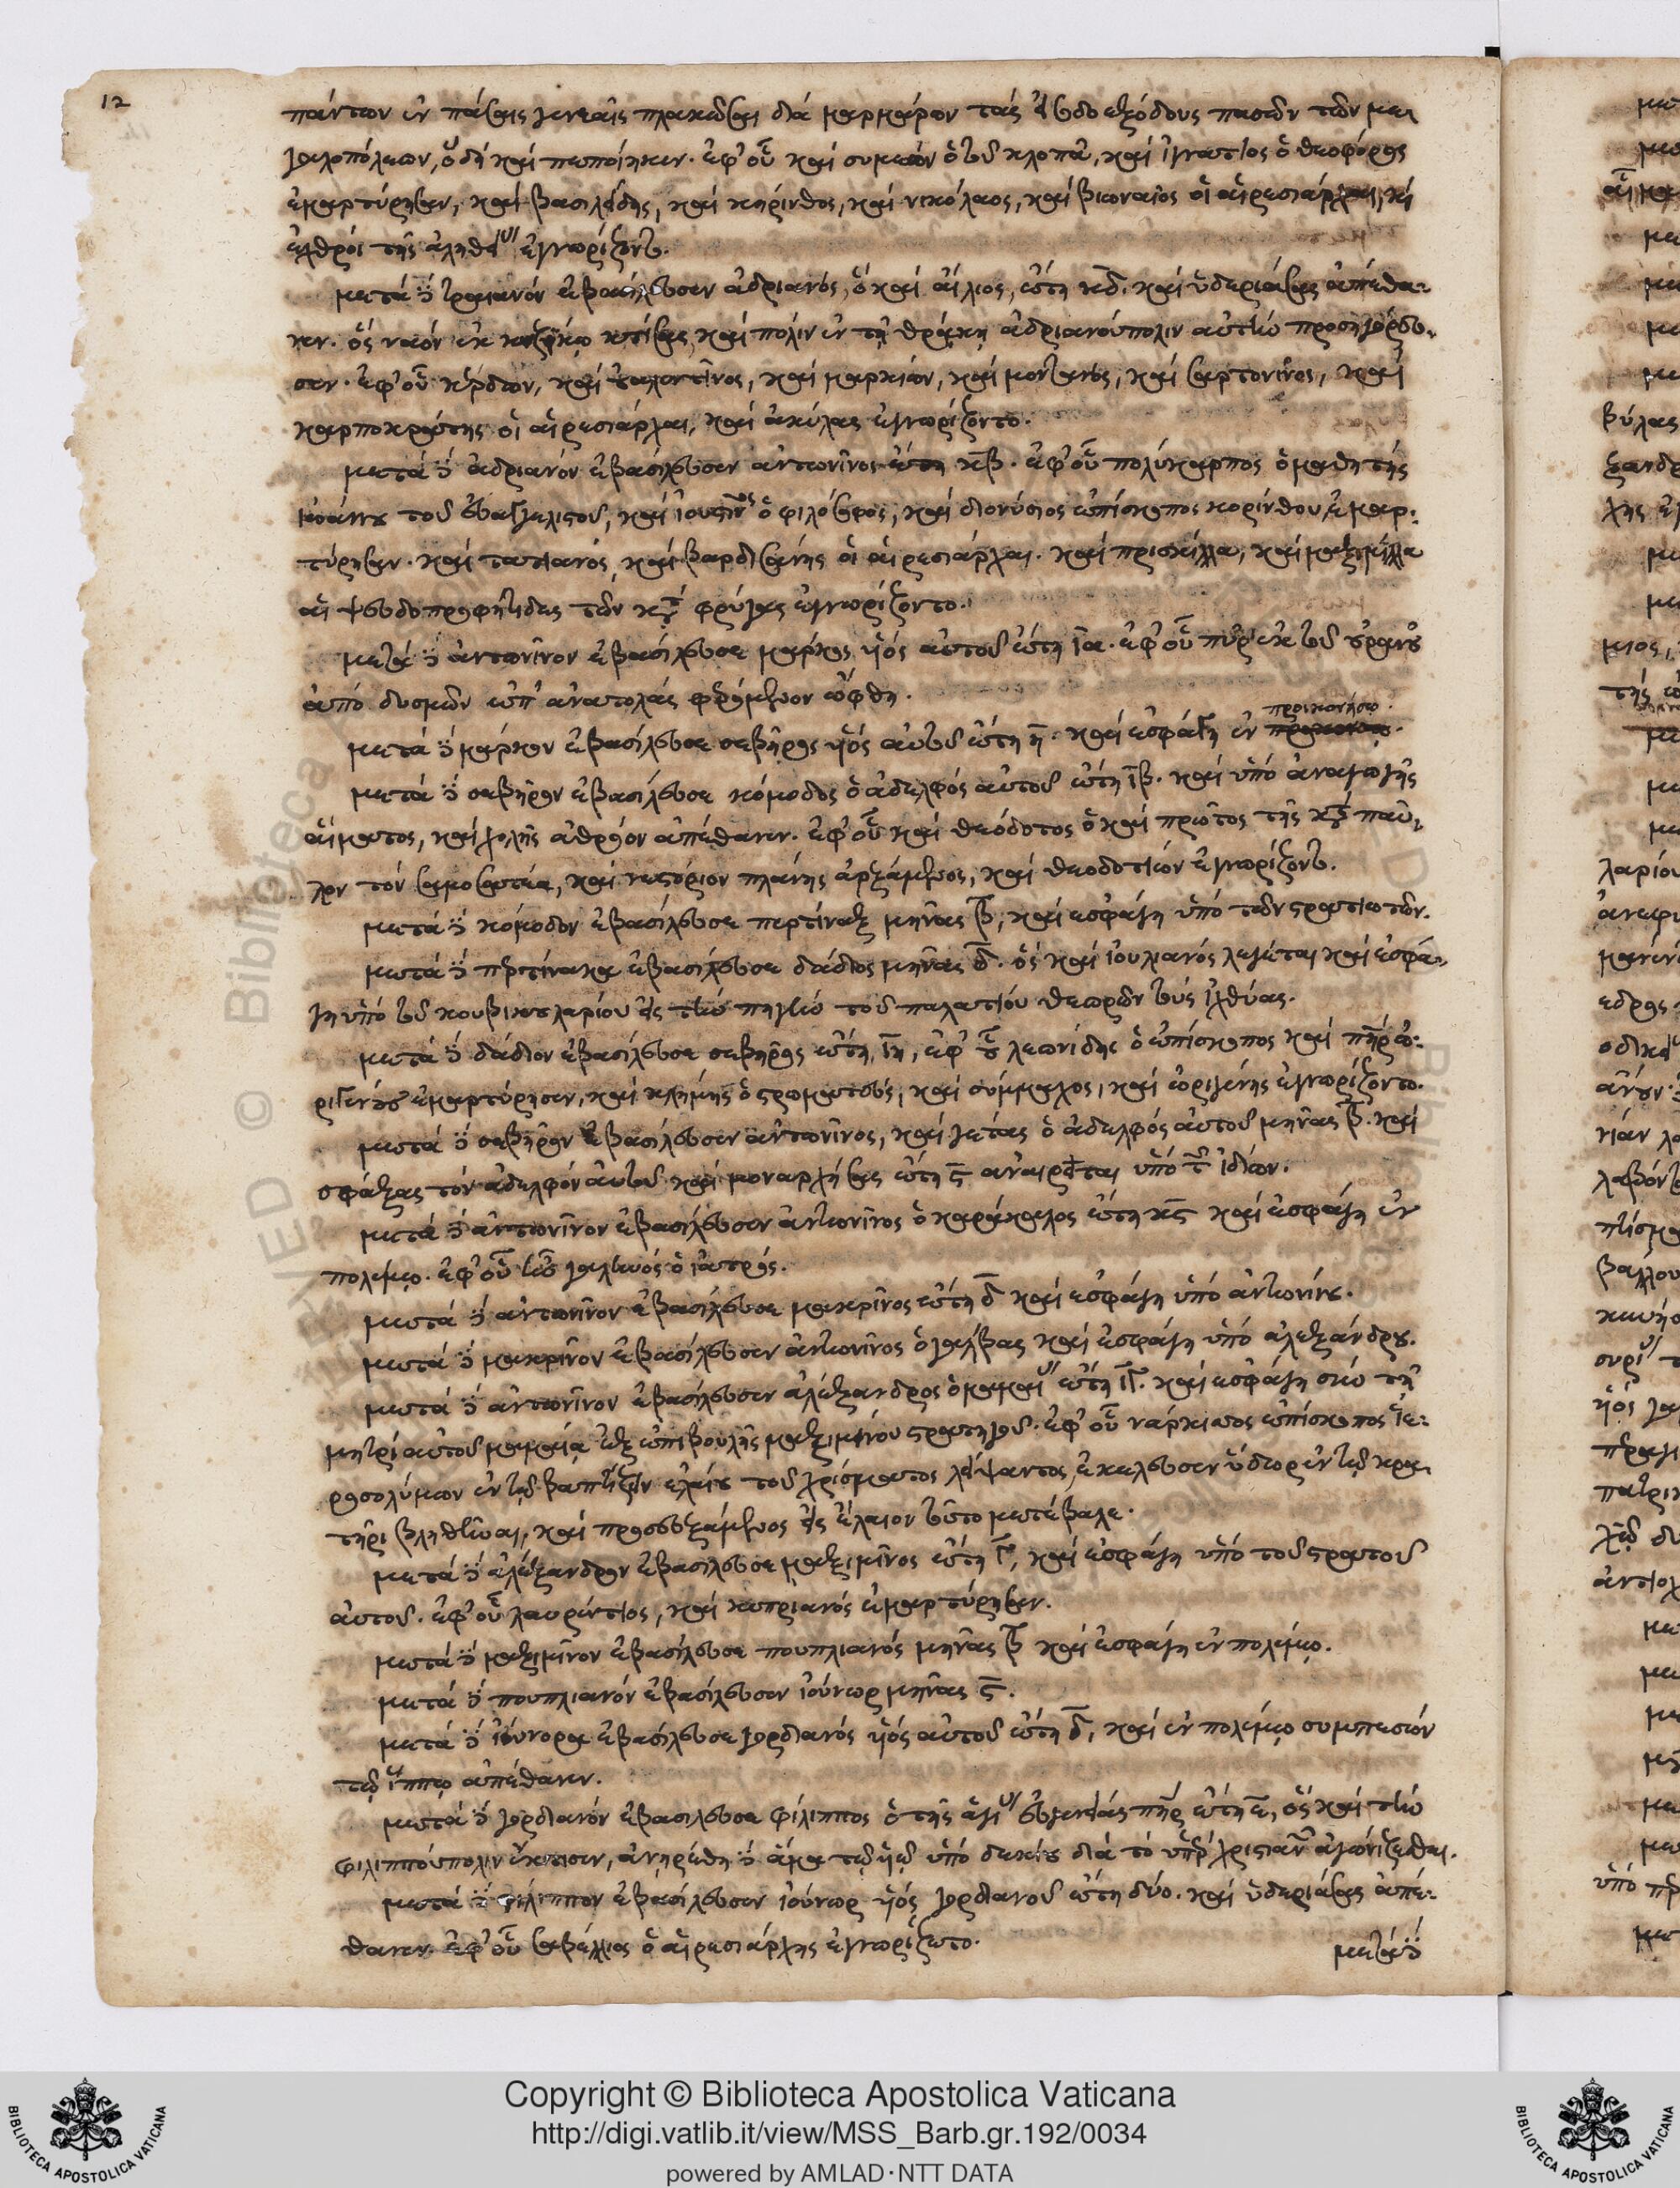 12
πάντων ἐν πάσαις γενεαῖς πλακῶσαι διὰ μαρμάρων τὰς εἰσοδοεξόδους πασῶν τῶν με-
γαλοπόλεων, ὃ δὴ καὶ πεποίηκεν. ἐφ' οὗ καὶ συμεὼν ὁ τοῦ κλοπᾶ, καὶ ἰγνάτιος ὁ θεοφόρος
ἐμαρτύρησαν, καὶ βασιλείδης, καὶ κήρινθος, καὶ νικόλαος, καὶ βιωναῖος οἱ αἱρεσιάρχαι, κὶ
ἐχθροὶ τῆς ἀληθείας ἐγνωρίζοντο.
μετὰ δὲ τραιανὸν ἐβασίλευσεν ἀδριανός, ὁ καὶ αἴλιος, ἔτη κδ. καὶ ὑδεριάσας ἀπέθα-
νεν. ὃς ναὸν ἐν κυζίκῳ κτίσας, καὶ πόλιν ἐν τῇ θράκῃ ἀδριανούπολιν αὐτὴν προσηγόρευ-
σεν. ἐφ' οὗ κέρδων, καὶ οὐαλεντῖνος, καὶ μαρκίων, καὶ μοντανός, καὶ σαρτονῖνος, καὶ
καρποκράτης οἱ αἱρεσιάρχαι, καὶ ἀκύλας ἐγνωρίζοντο.
μετὰ δὲ ἀδριανὸν ἐβασίλευσεν ἀντωνῖνος ἔτη κβ. ἐφ' οὗ πολύκαρπος ὁ μαθητὴς
ἰωάννου τοῦ εὐαγγελιστοῦ, καὶ ἰουστῖνος ὁ φιλόσοφος, καὶ διονύσιος ἐπίσκοπος κορίνθου, ἐμαρ-
τύρησαν. καὶ τατιανός, καὶ βαρδισάνης οἱ αἱρεσιάρχαι. καὶ πρισκίλλα, καὶ μαξιμίλλα
αἱ ψευδοπροφήτιδες τῶν κατὰ φρύγας ἐγνωρίζοντο.
μετὰ δὲ ἀντωνῖνον ἐβασίλευσε μάρκος ὑιὸς αὐτοῦ ἔτη ια. ἐφ' οὗ πῦρ ἐκ τοῦ οὐρανοῦ
ἀπὸ δυσμῶν ἐπ' ἀνατολὰς φερόμενον ὤφθη.
μετὰ δὲ μάρκον ἐβασίλευσε σεβῆρος ὑιὸς αὐτοῦ ἔτη η. καὶ ἐσφάγη ἐν προικονήσῳ.
μετὰ δὲ σεβῆρον ἐβασίλευσε κόμοδος ὁ ἀδελφὸς αὐτοῦ ἔτη ιβ. καὶ ὑπὸ ἀναγωγῆς
αἵματος, καὶ χολῆς ἀθρόον ἀπέθανεν. ἐφ' οὗ καὶ θεόδοτος ὁ καὶ πρῶτος τῆς κατὰ παῦ-
λον τὸν σαμοσατέα, καὶ νεστόριον πλάνης ἀρξάμενος, καὶ θεοδοτίων ἐγνωρίζοντο.
μετὰ δὲ κόμοδον ἐβασίλευσε περτίναξ μῆνας β, καὶ ἐσφάγη ὑπὸ τῶν στρατιωτῶν.
μετὰ δὲ περτίνακα ἐβασίλευσε δίδιος μῆνας δ. ὃς καὶ ἰουλιανὸς λέγεται καὶ ἐσφά-
γη ὑπὸ τοῦ κουβικουλαρίου εἰς τὴν πηγὴν τοῦ παλατίου θεωρῶν τοὺς ἰχθύας.
μετὰ δὲ δίδιον ἐβασίλευσε σεβῆρος ἔτη ιη, ἐφ' οὗ λεωνίδης ὁ ἐπίσκοπος καὶ πατὴρ ὠ-
ριγένους ἐμαρτύρησεν, καὶ κλήμης ὁ στρωματεύς, καὶ σύμμαχος, καὶ ὠριγένης ἐγνωρίζοντο.
μετὰ δὲ σεβῆρον ἐβασίλευσεν ἀντωνῖνος, καὶ γέτας ὁ ἀδελφὸς αὐτοῦ μῆνας β. καὶ
σφάξας τὸν ἀδελφὸν αὐτοῦ καὶ μοναρχήσας ἔτη ϛ ἀναιρεῖται ὑπὸ τῶν ἰδίων.
μετὰ δὲ ἀντωνῖνον ἐβασίλευσεν ἀντωνῖνος ὁ καράκαλος ἔτη κϛ καὶ ἐσφάγη ἐν
πολέμῳ. ἐφ' οὗ ἦν γαληνὸς ὁ ἰατρός.
μετὰ δὲ ἀντωνῖνον ἐβασίλευσε μακρῖνος ἔτη δ καὶ ἐσφάγη ὑπὸ ἀντωνίνου.
μετὰ δὲ μακρῖνον ἐβασίλευσεν ἀντωνῖνος ὁ γάλβας καὶ ἐσφάγη ὑπὸ ἀλεξάνδρου.
μετὰ δὲ ἀντωνῖνον ἐβασίλευσεν ἀλέξανδρος ὁ μαμαίας ἔτη ιγ. καὶ ἐσφάγη σὺν τῇ
μητρὶ αὐτοῦ μαμαίᾳ ἐξ ἐπιβουλῆς μαξιμίνου στρατηγοῦ. ἐφ' οὗ νάρκισος ἐπίσκοπος ἱε-
ροσολύμων ἐν τῷ βαπτίζειν ἐλαίου τοῦ χρίσματος λείψαντος, ἐκέλευσεν ὕδωρ ἐν τῷ κρα-
τῆρι βληθῆναι, καὶ προσευξάμενος εἰς ἔλαιον τοῦτο μετέβαλε.
μετὰ δὲ ἀλέξανδρον ἐβασίλευσε μαξιμῖνος ἔτη γ, καὶ ἐσφάγη ὑπὸ τοῦ στρατοῦ
αὐτοῦ. ἐφ' οὗ λαυρέντιος, καὶ κυπριανὸς ἐμαρτύρησαν.
μετὰ δὲ μαξιμῖνον ἐβασίλευσε πουπλιανὸς μῆνας β καὶ ἐσφάγη ἐν πολέμῳ.
μετὰ δὲ πουπλιανὸν ἐβασίλευσεν ἰούνωρ μῆνας ϛ.
μετὰ δὲ ἰούνορα ἐβασίλευσε γορδιανὸς ὑιὸς αὐτοῦ ἔτη δ, καὶ ἐν πολέμῳ συμπεσὼν
τῷ ἵππῳ ἀπέθανεν.
μετὰ δὲ γορδιανὸν ἐβασίλευσε φίλιππος ὁ τῆς ἁγίας εὐγενείας πατὴρ ἔτη ε, ὃς καὶ τὴν
φιλιππούπολιν ἔκτισεν, ἀνῃρέθη δὲ ἅμα τῷ ὑιῷ ὑπὸ δεκίου διὰ τὸ ὑπὲρ χριστιανῶν ἀγωνίζεσθαι.
μετὰ δὲ φίλιππον ἐβασίλευσεν ἰούνωρ ὑιὸς γορδιανοῦ ἔτη δύο. καὶ ὑδεριάσας ἀπέ-
θανεν. ἐφ' οὗ σαβέλλιος ὁ αἱρεσιάρχης ἐγνωρίζετο.
μετὰ δὲ
Copyright © Biblioteca Apostolica Vaticana
http://digi.vatlib.it/view/MSS_Barb.gr.192/0034
powered by AMLAD·NTT DATA
BIBLIOTECA APOSTOLICA VATICANA
BIBLIOTECA APOSTOLICA VATICANA